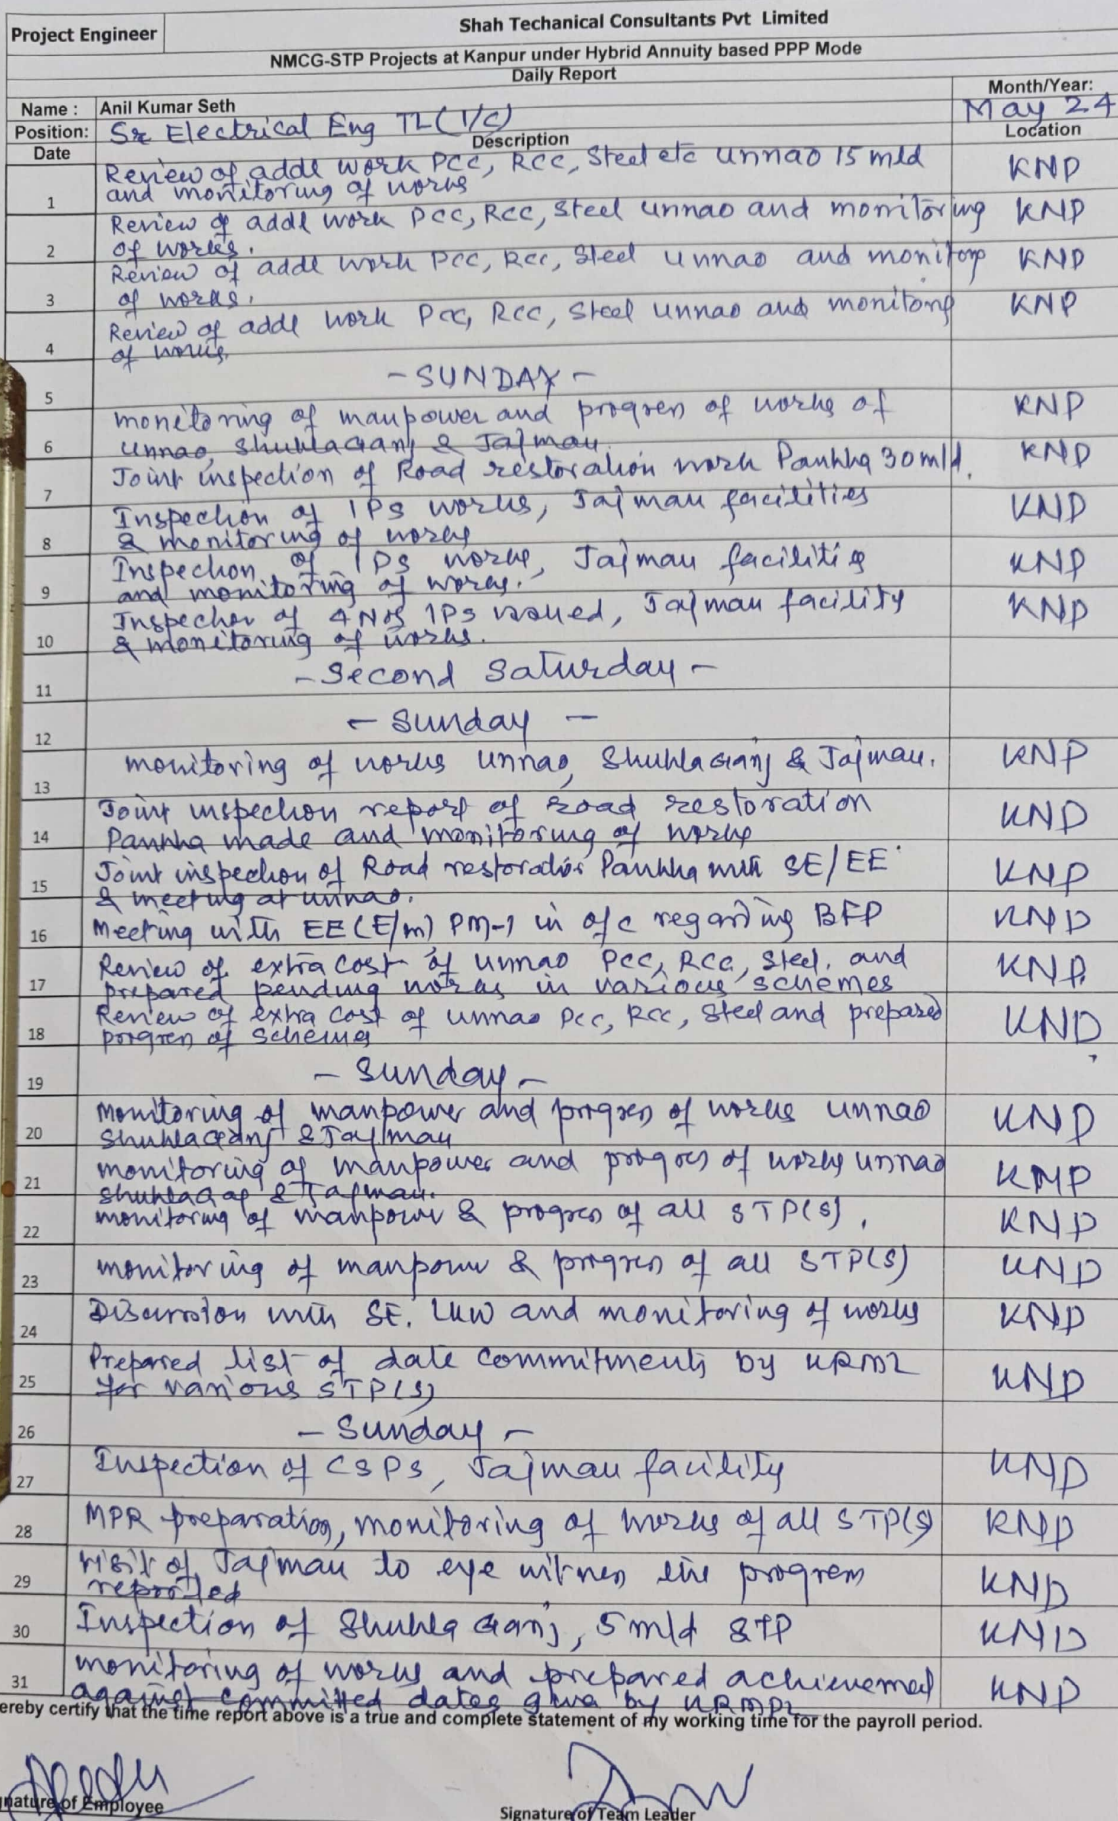 Project Engineer
Shah Techanical Consultants Pvt Limited
NMCG-STP Projects at Kanpur under Hybrid Annuity based PPP Mode
Daily Report
Name : Anil Kumar Seth Month/Year:
Position: Sr Electrical Eng TL (I/C) May 24
Date Description Location
Review of addl work PCC, RCC, Steel etc Unnao 15 mld KNP
1 and monitoring of works
Review of addl work PCC, RCC, Steel unnao and monitoring KNP
2 of works.
Review of addl work PCC, RCC, Steel unnao and monitoring KNP
3 of works.
Review of addl work PCC, RCC, Steel unnao and monitoring KNP
4 of works.
5 - SUNDAY -
monitoring of manpower and progress of works of KNP
6 unnao, ShuklaGanj & Jajmau.
7 Joint inspection of Road restoration work Pankha 30 mld. KNP
Inspection of IPS works, Jajmau facilities KNP
8 & monitoring of works
Inspection of IPS works, Jajmau facilities KNP
9 and monitoring of works.
Inspection of 4 Nos IPS , Jajmau facility KNP
10 & monitoring of works.
11 - Second Saturday -
12 - Sunday -
13 monitoring of works unnao, ShuklaGanj & Jajmau. KNP
Joint inspection report of road restoration KNP
14 Pankha made and monitoring of works
Joint inspection of Road restoration Pankha with SE/EE KNP
15 & meeting at unnao.
16 Meeting with EE (E/m) PM-1 in ofc regarding BFP KNP
Review of extra cost of unnao PCC, RCC, Steel, and KNP
17 prepared pending works in various schemes
Review of extra cost of unnao PCC, RCC, Steel and prepared KNP
18 progress of schemes
19 - Sunday -
monitoring of manpower and progress of works unnao KNP
20 ShuklaGanj & Jajmau
monitoring of manpower and progress of works unnao KNP
21 ShuklaGanj & Jajmau.
22 monitoring of manpower & progress of all STP(S), KNP
23 monitoring of manpower & progress of all STP(S) KNP
24 Discussion with SE. LKW and monitoring of works KNP
Prepared list of date commitments by KRMPL KNP
25 for various STP(S)
26 - Sunday -
27 Inspection of CSPS, Jajmau facility KNP
28 MPR preparation, monitoring of works of all STP(S) KNP
visit of Jajmau to eye witness the progress KNP
29 reported
30 Inspection of Shukla Ganj, 5 mld STP KNP
31 monitoring of works and prepared achievement KNP
against committed dates given by KRMPL
ereby certify that the time report above is a true and complete statement of my working time for the payroll period.
nature of Employee Signature of Team Leader